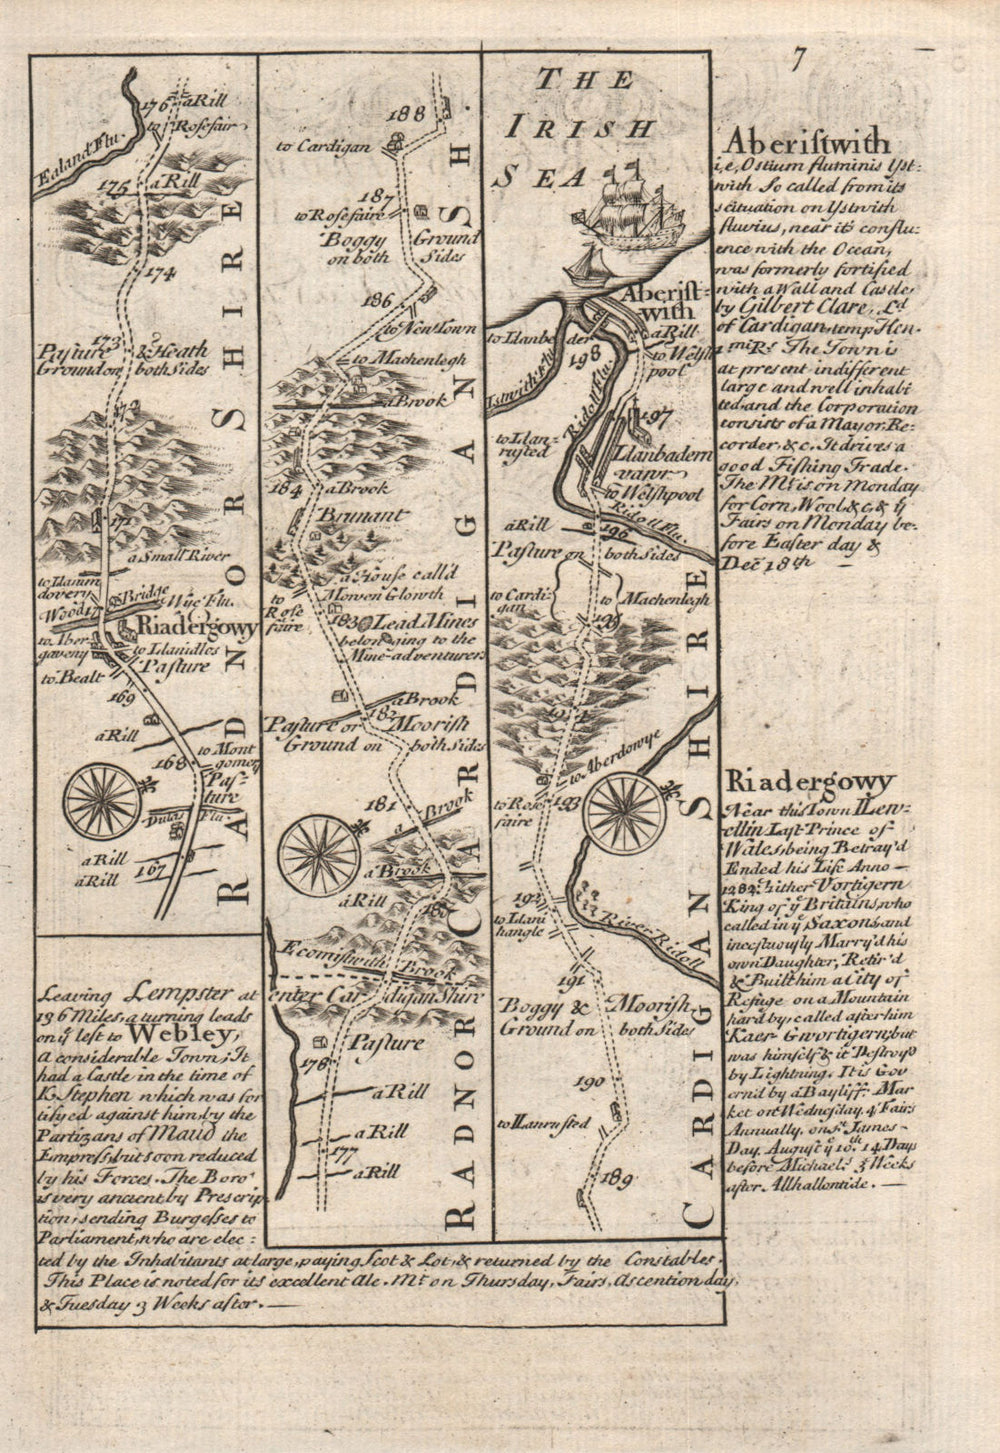 7
176
a Rill
to Rosefair
Ealand Flu.
175
a Rill
174
173
Pasture & Heath
Ground on both Sides
172
171
a Small River
to Llanim
dovery
Bridge
Wye Flu.
Wood
Riadergowy
to Aber-
gaveny
to Llanidles
Pasture
to Bealt
169
a Rill
168
to Mont
gomery
Pas-
ture
Dulas Flu.
a Rill
a Rill
167
RADNORSHIRE
Leaving Lempster at
136 Miles, a turning leads
on ye left to Webley,
a considerable Town; It
had a Castle in the time of
K. Stephen which was for
tifyed against him, by the
Partizans of Maud the
Empress, but soon reduced
by his Forces. The Boro'
is very ancient by Prescrip
tion, sending Burgesses to
Parliament, who are elec:
ted by the Inhabitants at large, paying Scot & Lot, & returned by the Constables.
This Place is noted for its excellent Ale. Mt. on Thursday, Fairs, Ascention day,
& Tuesday 3 Weeks after. —
188
to Cardigan
187
to Rosefaire
Boggy Ground
on both Sides
186
to New Town
to Machenlegh
a Brook
184
a Brook
Brunant
a House call'd
Morven Glowth
to
Rose
faire
183
Lead Mines
belonging to the
Mine-adventurers
a Brook
182
Pasture or Moorish
Ground on both Sides
181
a Brook
a Brook
a Rill
180
Ecomistwith Brook
enter Cardigan Shire
Pasture
178
a Rill
a Rill
177
a Rill
RADNOR
CARDIGANSH.
THE
IRISH
SEA
Aberist=
with
to Llanbe
der
a Rill
to Welsh
pool
198
Istwith Flu.
Ridoll Flu.
197
to Llan-
rusted
Llanbadern
vawr
to Welshpool
Ridoll Flu.
a Rill
196
Pasture on both Sides
to Cardi-
gan
to Machenlegh
195
194
to Aberdowye
to Rose
faire
193
192
to Llani
hangle
River Ridoll
191
Boggy & Moorish
Ground on both Sides
190
to Llanrusted
189
CARDIGANSHIRE
Aberistwith
i,e, Ostium fluminis Yst-
with So called from its
scituation on Ystwith
fluvius, near its conflu:
ence with the Ocean,
was formerly fortified
with a Wall and Castle,
by Gilbert Clare, Ld.
of Cardigan, temp Hen.
1mi Rs. The Town is
at present indifferent
large and well inhabi
ted, and the Corporation
consists of a Mayor, Re-
corder, & c. It drives a
good Fishing Trade.
The Mt. is on Monday
for Corn, Wool, & c, & ye
Fairs on Monday be-
fore Easter day &
Decr 18th —
Riadergowy
Near this Town Llew-
ellin Last Prince of
Wales, being Betray'd
Ended his Life Anno —
1282. hither Vortigern
King of ye Britains, who
called in ye Saxons and
incestuously Marry'd his
own Daughter, Retir'd
& Built him a City of
Refuge on a Mountain
hard by; called after him
Kaer Gwortigern, but
was himself & it Destroy'd
by Lightning. It is Gov
ern'd by a Bayliff. Mar
ket on Wednesday, 4 Fairs
Annually, on St. James-
Day, August ye 10th. 14 Days
before Michaels. 3 Weeks
after Allhallontide. —